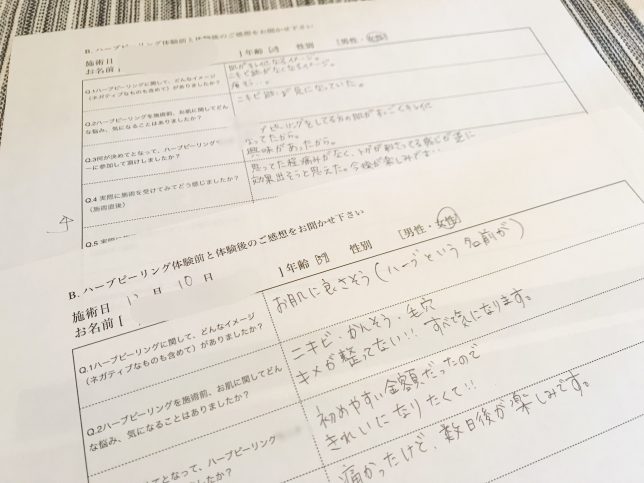 B. ハーブピーリング体験前と体験後のご感想をお聞かせ下さい
施術日
お名前
年齢 性別 [男性・女性]
Q.1ハーブピーリングに関して、どんなイメージ
(ネガティブなものも含めて)がありましたか?
肌がキレイになるイメージ。
ニキビ跡がなくなるイメージ。
痛そう…。
Q.2ハーブピーリングを施術前、お肌に関してどん
な悩み、気になることはありましたか?
ニキビ跡が気になっていた。
Q.3何が決めてとなって、ハーブピーリング
に参加して頂けましたか?
ピーリングをしてる方の肌がすっごくキレイに
なってたから。
興味があったから。
Q.4 実際に施術を受けてみてどう感じましたか?
(施術直後)
思ってた程痛みがなく、トゲが刺さってる感じが逆に
効果出そうと思えた。今後が楽しみです…
Q.5
B. ハーブピーリング体験前と体験後のご感想をお聞かせ下さい
施術日 日 10 日
お名前
年齢 性別 [男性・女性]
Q.1ハーブピーリングに関して、どんなイメージ
(ネガティブなものも含めて)がありましたか?
お肌に良さそう(ハーブという名前が)
Q.2ハーブピーリングを施術前、お肌に関してどん
な悩み、気になることはありましたか?
ニキビ・かんそう・毛穴
キメが整ってない!! すべて気になります。
てとなって、ハーブピーリング
ましたか?
初めやすい金額だったので
きれいになりたくて!!
痛かったけど、数日後が楽しみです。